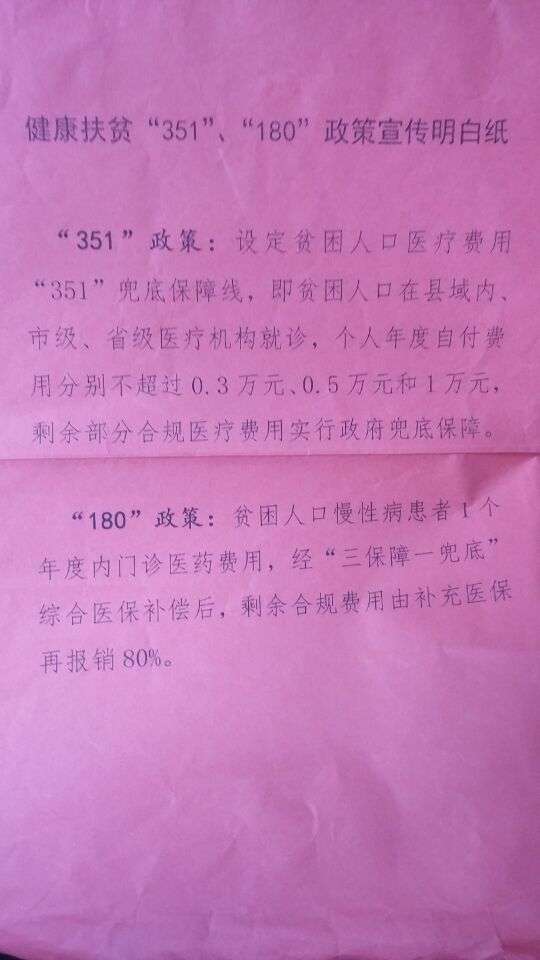 健康扶贫“351”、“180”政策宣传明白纸
“351”政策：设定贫困人口医疗费用
“351”兜底保障线，即贫困人口在县域内、
市级、省级医疗机构就诊，个人年度自付费
用分别不超过0.3万元、0.5万元和1万元，
剩余部分合规医疗费用实行政府兜底保障。
“180”政策：贫困人口慢性病患者1个
年度内门诊医药费用，经“三保障一兜底”
综合医保补偿后，剩余合规费用由补充医保
再报销80%。